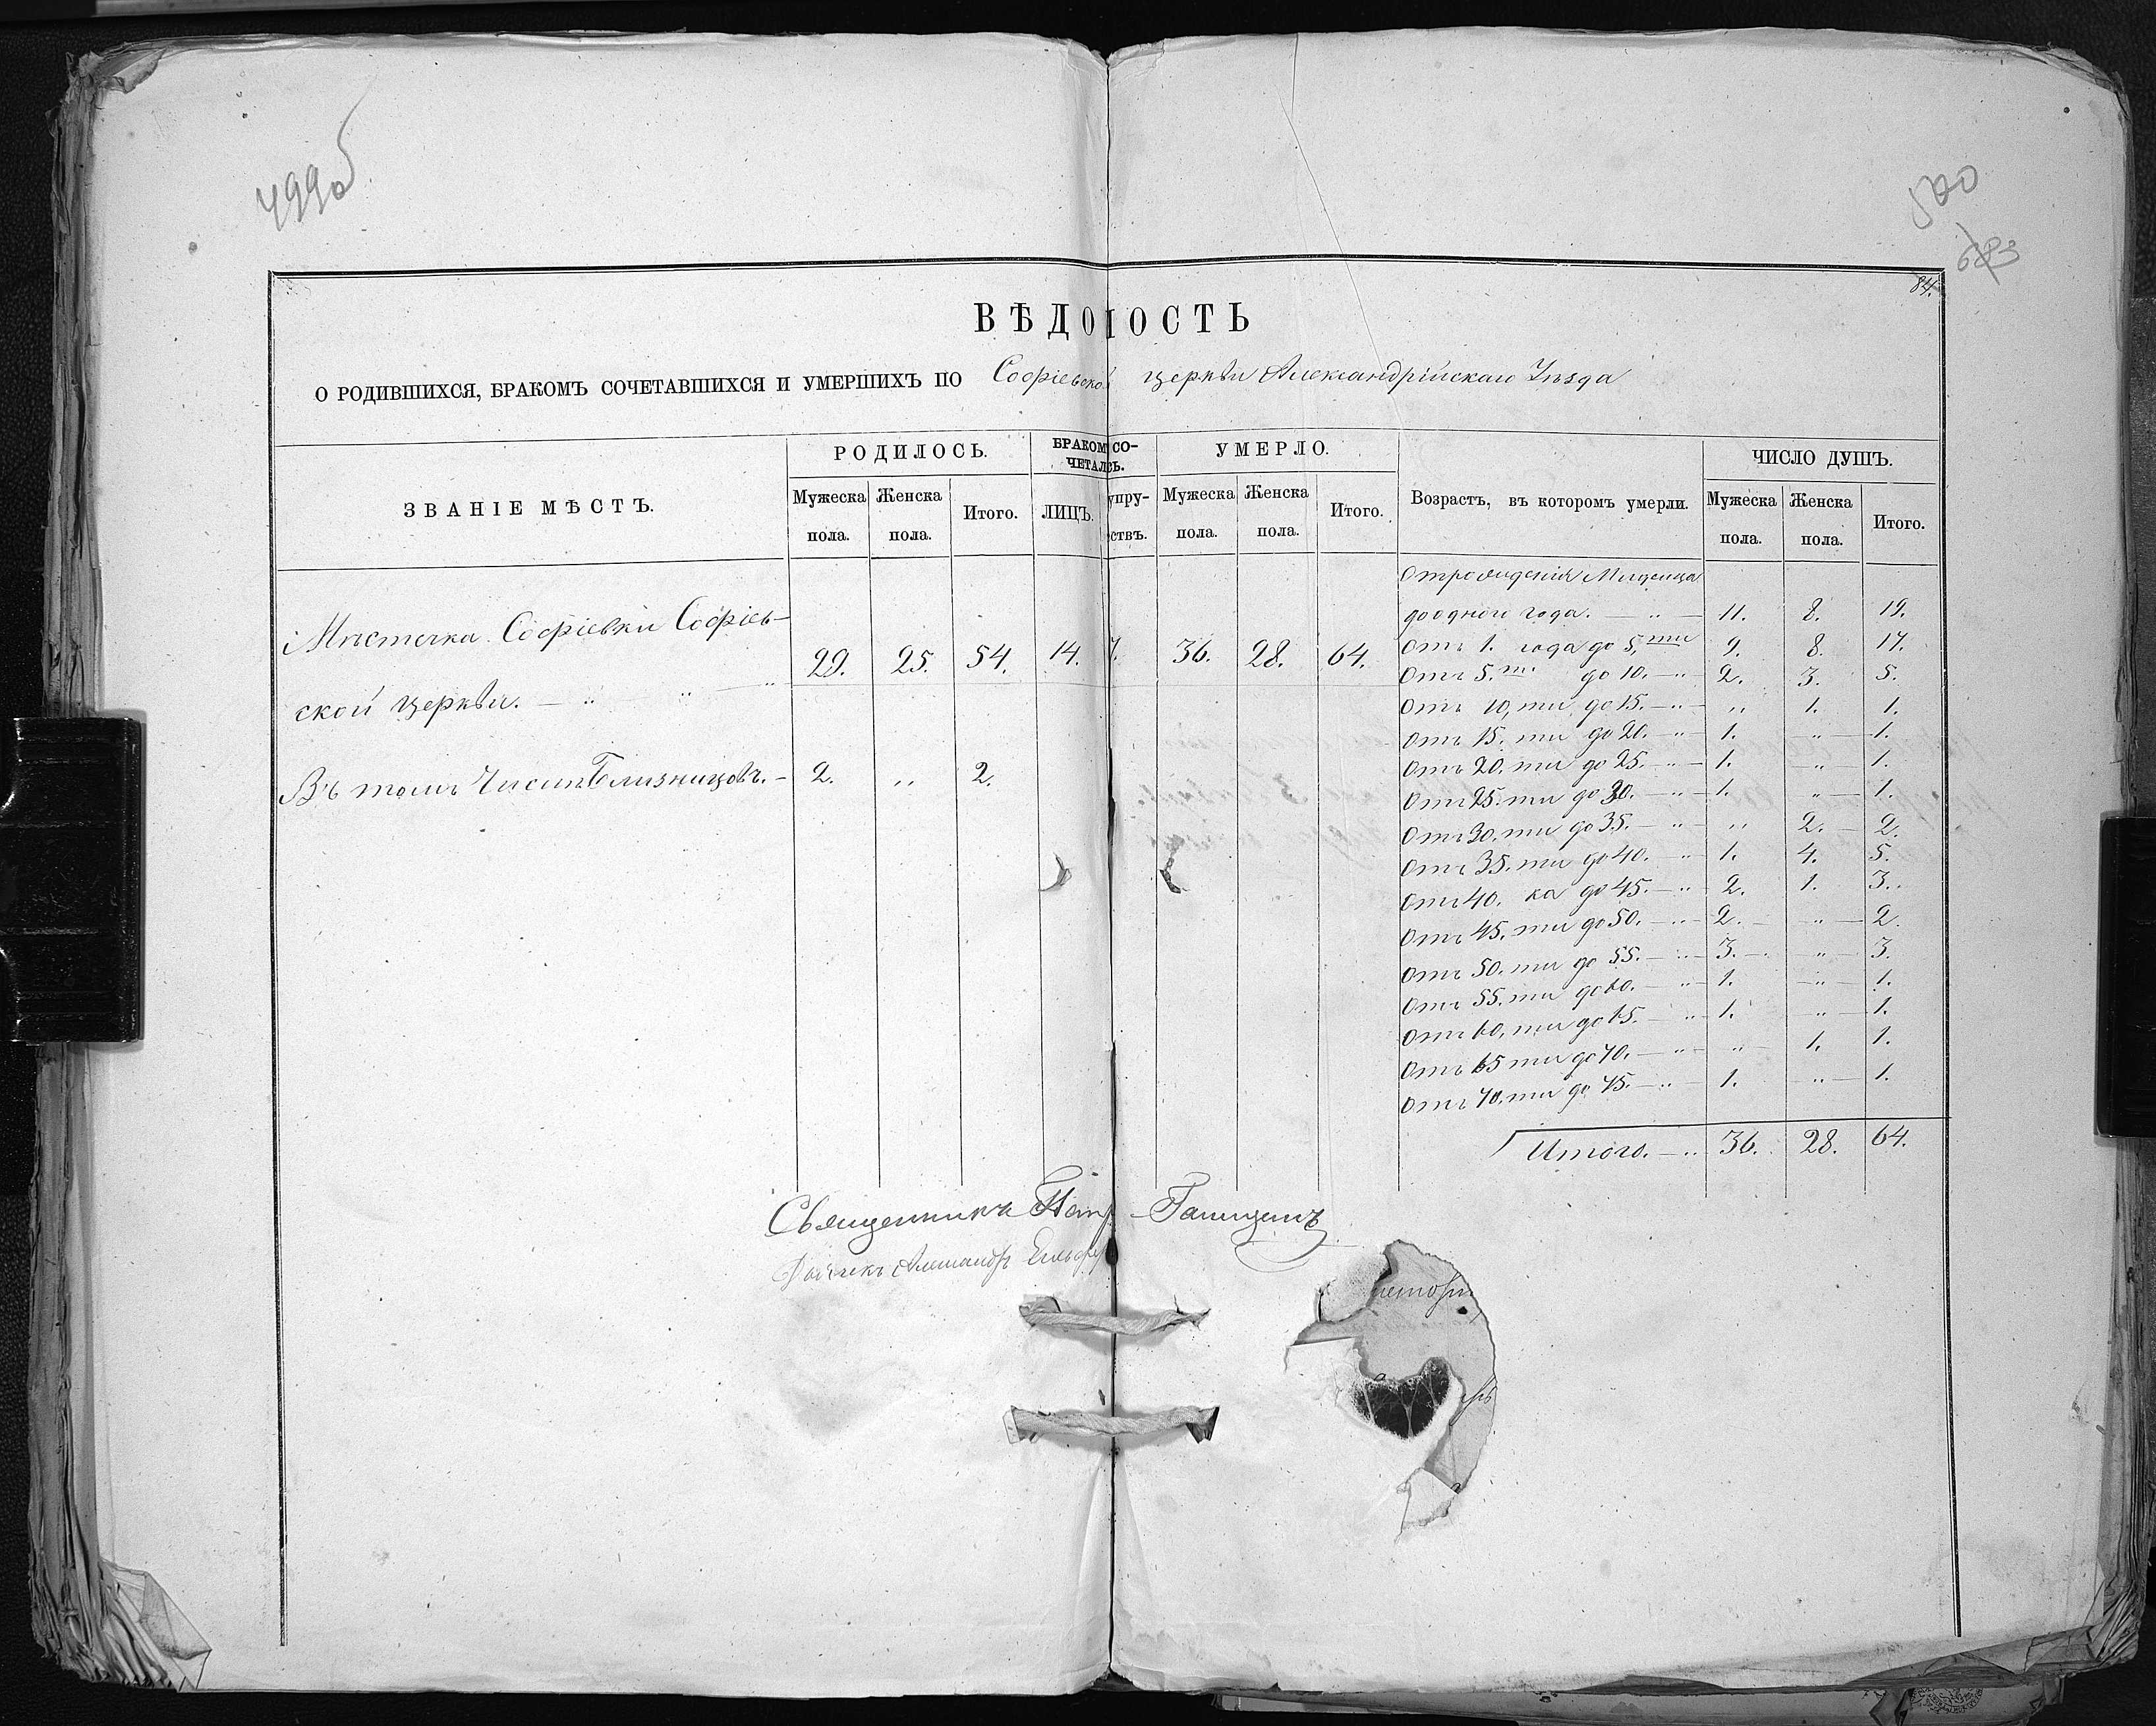 499об
500
683
84.
ВѢДОМОСТЬ
О РОДИВШИХСЯ, БРАКОМЪ СОЧЕТАВШИХСЯ И УМЕРШИХЪ ПО Софіевской церкви Александрійскаго Уѣзда
ЗВАНІЕ МѢСТЪ.
РОДИЛОСЬ.
Мужеска пола.
Женска пола.
Итого.
БРАКОМ СО-
ЧЕТАЛ СЬ.
ЛИЦЪ.
упру-
ствъ.
УМЕРЛО.
Мужеска пола.
Женска пола.
Итого.
Возрастъ, въ которомъ умерли.
ЧИСЛО ДУШЪ.
Мужеска пола.
Женска пола.
Итого.
Мѣстечка Софіевки Софіев-
ской церкви. — „ — „ 29. 25. 54. 14. 7. 36. 28. 64.
Въ томъ Числѣ Близнецовъ. — 2. „ 2.
Отрожденія Младенца
до одного года. — „ — 11. 8. 19.
Отъ 1. года до 5,ти 9. 8. 17.
Отъ 5.ти до 10. — „ 2. 3. 5.
Отъ 10,ти до 15. — „ — „ 1. 1.
Отъ 15. ти до 20. — „ 1. „ — 1.
Отъ 20. ти до 25. — „ — 1. „ — 1.
Отъ 25. ти до 30. — „ — 1. „ — 1.
Отъ 30. ти до 35. — „ — „ 2. — 2.
Отъ 35. ти до 40. — „ 1. 4. 5.
Отъ 40. ка до 45. — „ 2. 1. 3.
Отъ 45. ти до 50. — „ — 2. — „ — 2.
Отъ 50. ти до 55. — „ — 3. — „ — 3.
Отъ 55. ти до 60. — „ — 1. — „ — 1.
Отъ 60, ти до 65. — „ — 1. „ — 1.
Отъ 65 ти до 70. — „ — „ — 1. 1.
Отъ 70. ти до 75. — „ — 1. „ — 1.
Итого. — „ 36. 28. 64.
Священникъ
Александръ